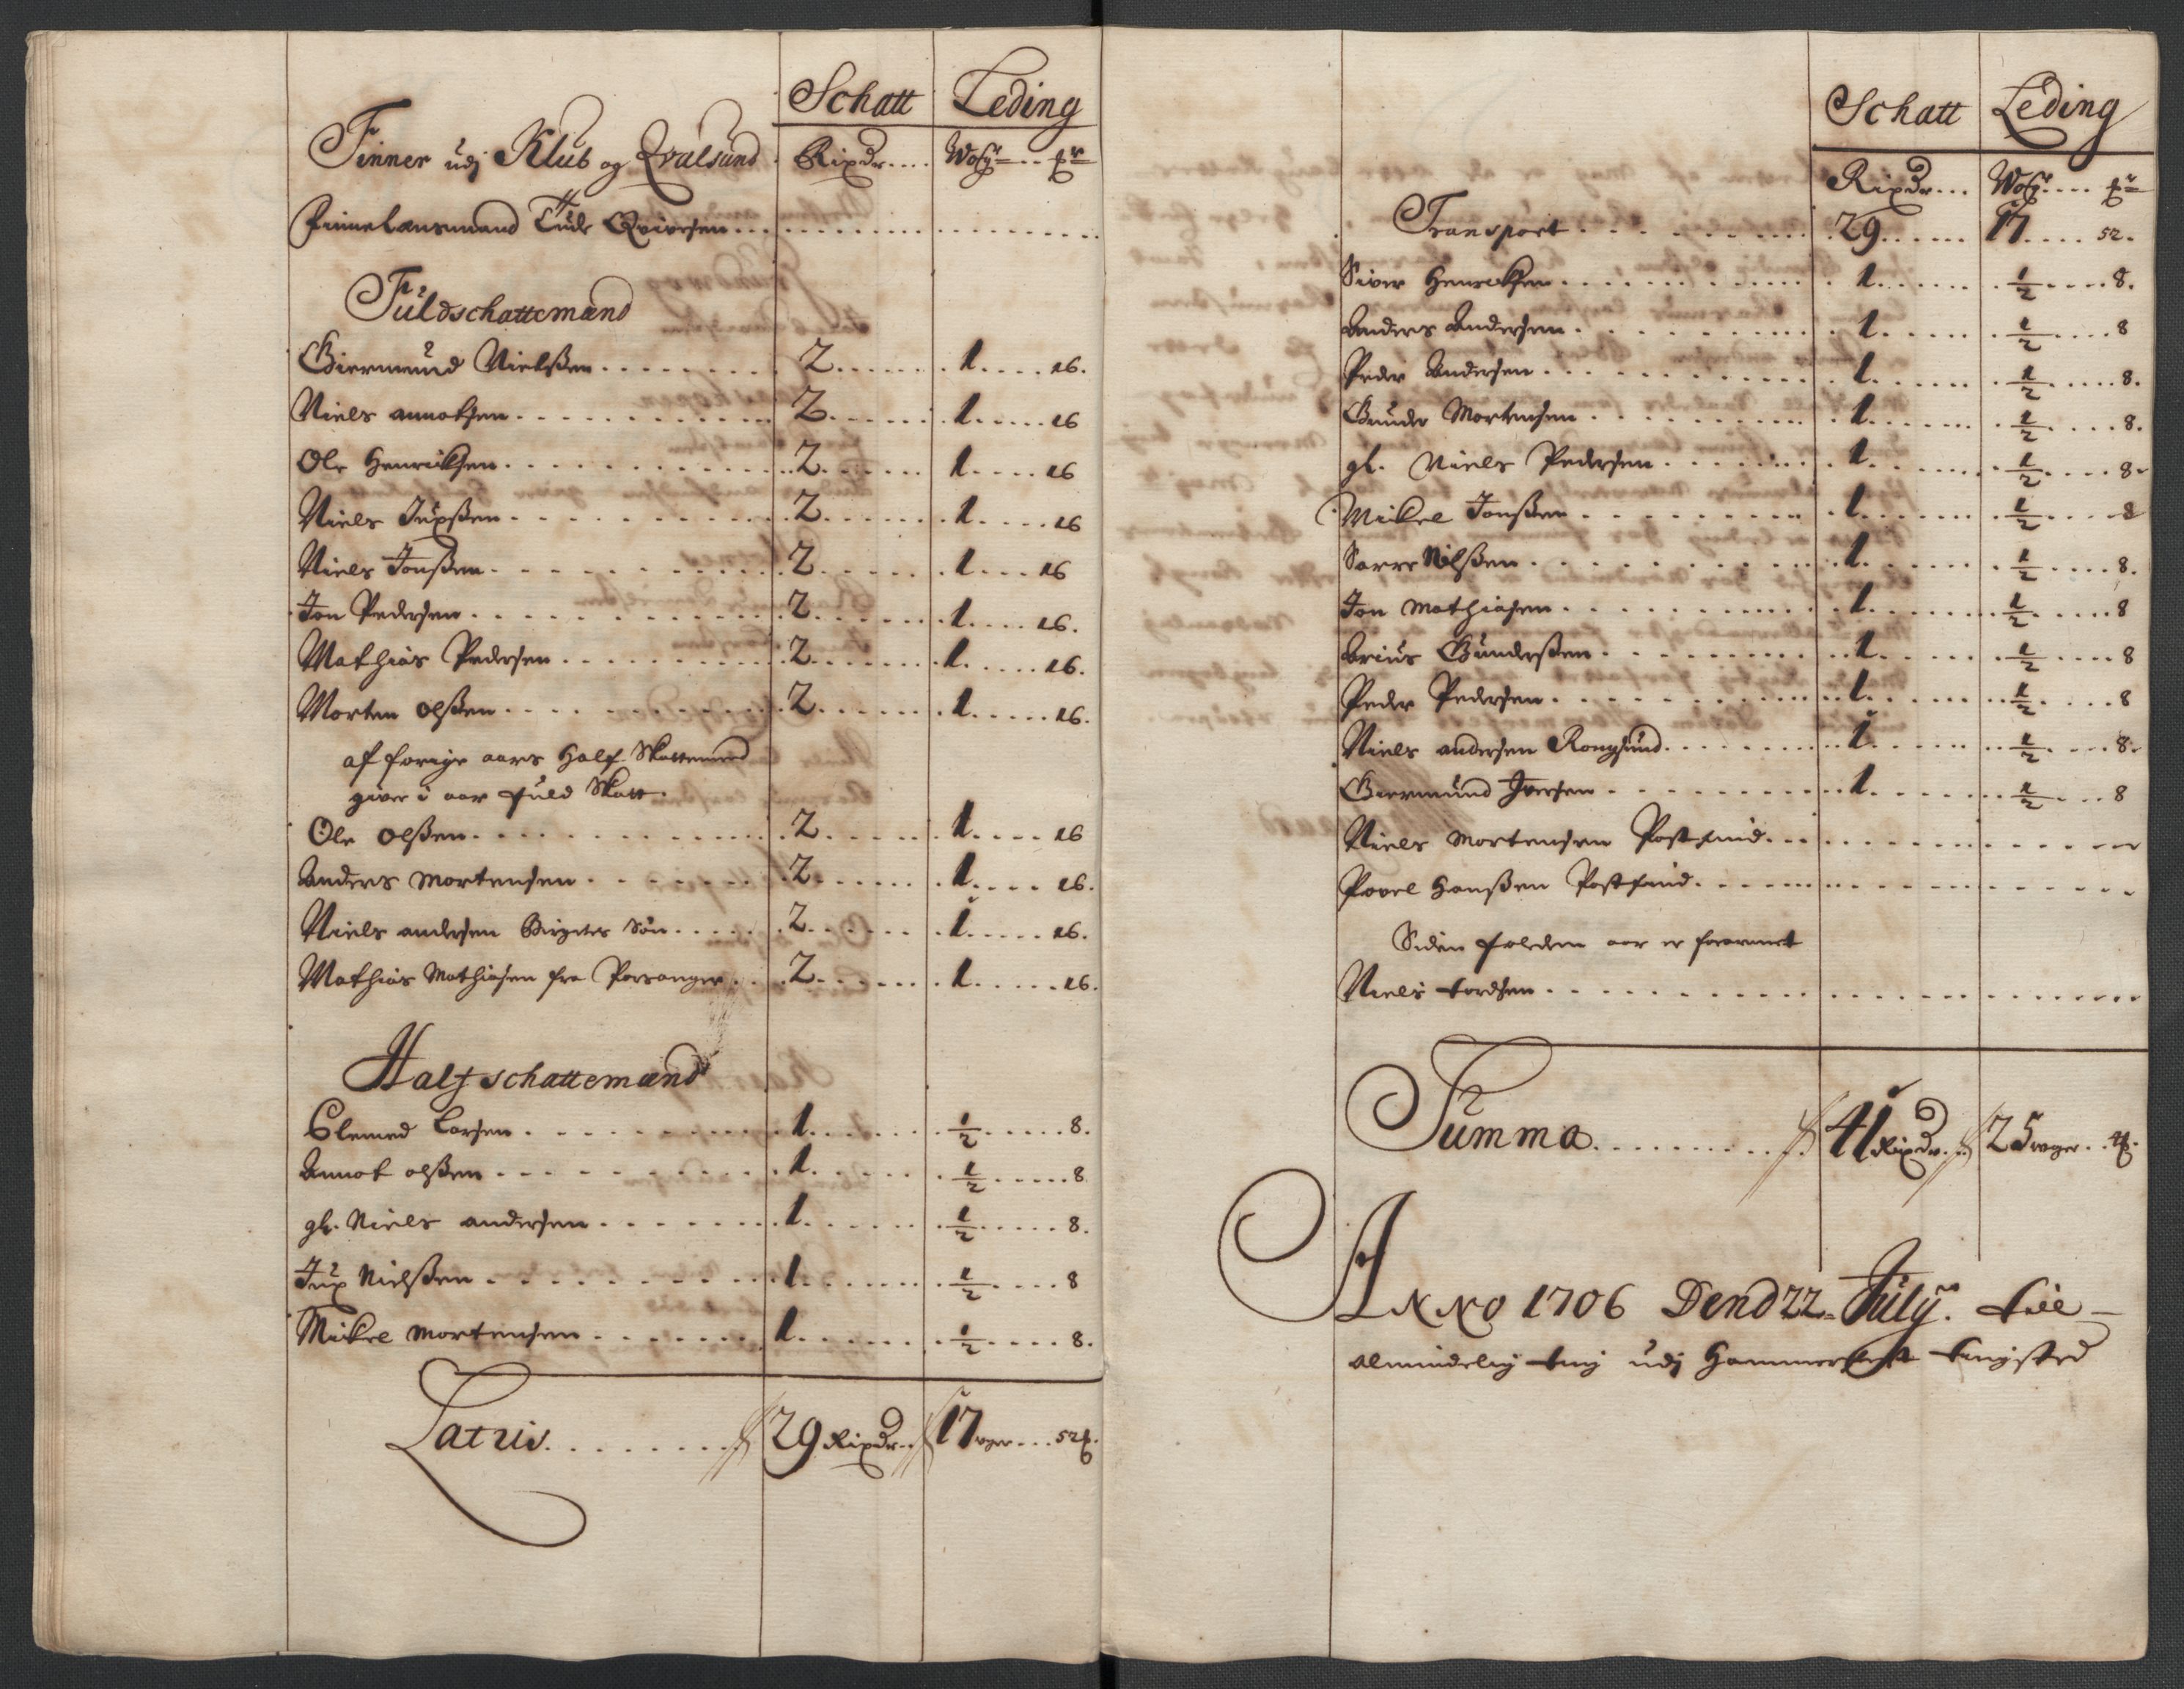 Schatt Leding
Finner udj Klub og Qvalsund Rixdr.... Woger ... pr
Finnelensmand Tude Qviversen
Fuldschattemænd
Giermund Nielssen 2 1 16.
Niels annothsen 2 1 16
Ole Henrichsen 2 1 16
Niels Jupssen 2 1 16
Niels Jonssen 2 1 16
Jon Pedersen 2 1 16.
Mathias Pedersen 2 1 16.
Morten olssen 2 1 16.
af forrige aars Half Skattemend
giver i aar fuld Skatt.
Ole olssen 2 1 16
Anders Mortensen 2 1 16.
Niels andersen Birgites Søn 2 1 16.
Mathias Mathiasen fra Porsanger 2 1 16.
Halfschattemænd
Clemed Larsen 1 1/2 8.
Annot olssen 1 1/2 8
gl. Niels andersen 1 1/2 8.
Jup Nielssen 1 1/2 8
Mikel Mortensen 1 1/2 8.
Latus 29 Rixdr. 17 woger 52 p.
Schatt Leding
Rixdr... Woger.... pr
Transport 29 17 52.
Siver Henrichsen 1 1/2 8.
Anders Andersen 1 1/2 8
Peder Andersen 1 1/2 8.
Gunder Mortensen 1 1/2 8.
gl. Niels Pedersen 1 1/2 8
Mikel Jonssen 1 1/2 8
Sarre Nilssen 1 1/2 8.
Jon Mathiasen 1 1/2 8
Arius Gunderssen 1 1/2 8
Peder Pedersen 1 1/2 8
Niels andersen Rongsund 1 1/2 8.
Giermund Iversen 1 1/2 8
Niels Mortensen Postfind
Povel Hanssen Postfind
Siden forleden aar er forarmet
Niels tordsen
Summa 41 Rixdr. 25 woger 4 p.
ANNO 1706 Dend 22 July. till
almindelig ting udj Hammerfest tingsted